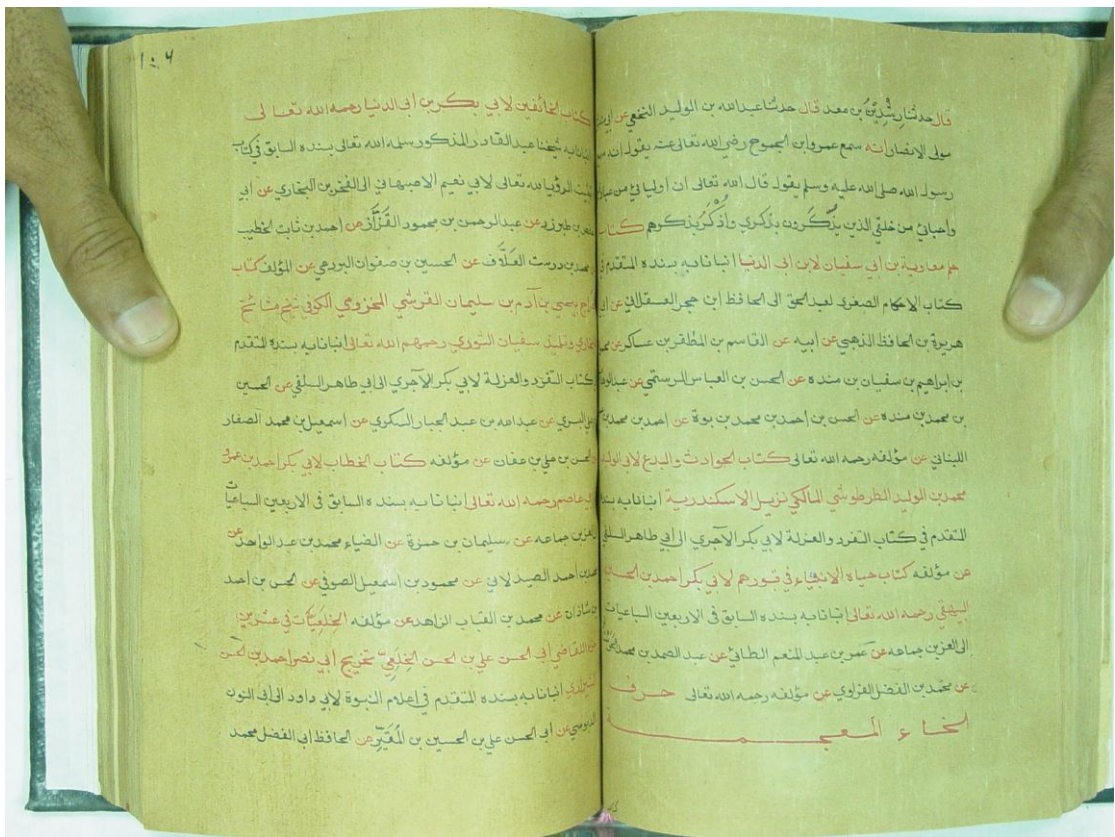 قال حدثنا رشدين بن سعد قال حدثنا عبد الله بن الوليد التجيبي عن ابي
مولى الانصار انه سمع عمرو ابن الجموح رضي الله تعالى عنه يقول انه
رسول الله صلى الله عليه وسلم يقول قال الله تعالى ان أوليائي من
وأحبائي من خلقي الذين يذكرون بذكري وأذكر بذكرهم كتاب
حلم معاوية بن أبي سفيان لابن ابي الدنيا انبانا به بسنده المتقدم في
كتاب الاحكام الصغرى لعبد الحق الى الحافظ ابن حجر العسقلاني عن
هريرة بن الحافظ الذهبي عن أبيه عن القاسم بن المظفر بن عساكر عن
بن إبراهيم بن سفيان بن منده عن الحسن بن العباس الرستمي عن
بن محمد بن منده عن الحسن بن أحمد بن محمد بن يوة عن احمد بن محمد بن
اللبناني عن مؤلفه رحمه الله تعالى كتاب الحوادث والبدع لابي الوليد
محمد بن الوليد الطرطوشي المالكي نزيل الاسكندرية انبانا به
المتقدم في كتاب التفرد والعزلة لابي بكر الآجري الى أبي طاهر السلفي
عن مؤلفه كتاب حياة الانبياء في قبورهم لابي بكر أحمد بن الحسين
البيهقي رحمه الله تعالى انبانا به بسنده السابق في الاربعين السباعيات
الى العز بن جماعه عن عمر بن عبد المنعم الطائي عن عبد الصمد بن محمد
عن محمد بن الفضل الفراوي عن مؤلفه رحمه الله تعالى حرف
الخاء المعجمة
١٠٤
كتاب الخائفين لابي بكر بن أبي الدنيا رحمه الله تعالى
انبانا به شيخنا عبد القادر المذكور سلمه الله تعالى بسنده السابق في كتاب
تثبيت الرؤيا لله تعالى لابي نعيم الاصبهاني الى الفخر بن البخاري عن أبي
بن طبرزد عن عبد الرحمن بن محمود القزاز عن احمد بن ثابت الخطيب
محمد بن درست العلاف عن الحسين بن صفوان البردعي عن المؤلف كتاب
يحيى بن آدم بن سليمان القرشي المخزومي الكوفي شيخ مشائخ
وتلميذ سفيان الثوري رحمهم الله تعالى انبانا به بسنده المتقدم
كتاب التفرد والعزلة لابي بكر الآجري الى ابي طاهر السلفي عن الحسين
علي البسري عن عبد الله بن عبد الجبار السكري عن اسمعيل بن محمد الصفار
الحسن بن علي بن عفان عن مؤلفه كتاب الخطاب لابي بكر احمد بن عمرو
أبي عاصم رحمه الله تعالى انبانا به بسنده السابق في الاربعين السباعيات
العز بن جماعه عن سليمان بن حمزة عن الضياء محمد بن عبد الواحد عن
بن أحمد الصيدلاني عن محمود بن إسمعيل الصوفي عن الحسن بن أحمد
بن شاذان عن محمد بن القباب الزاهد عن مؤلفه الخلعيات في عشرين
للقاضي أبي الحسن علي بن الحسن الخلعي تخريج أبي نصر احمد بن الحسن
الشيرازي انبانا به بسنده المتقدم في اعلام النبوة لابي داود الى أبي النون
الدبوسي عن أبي الحسن علي بن الحسين بن المقير عن الحافظ ابي الفضل محمد